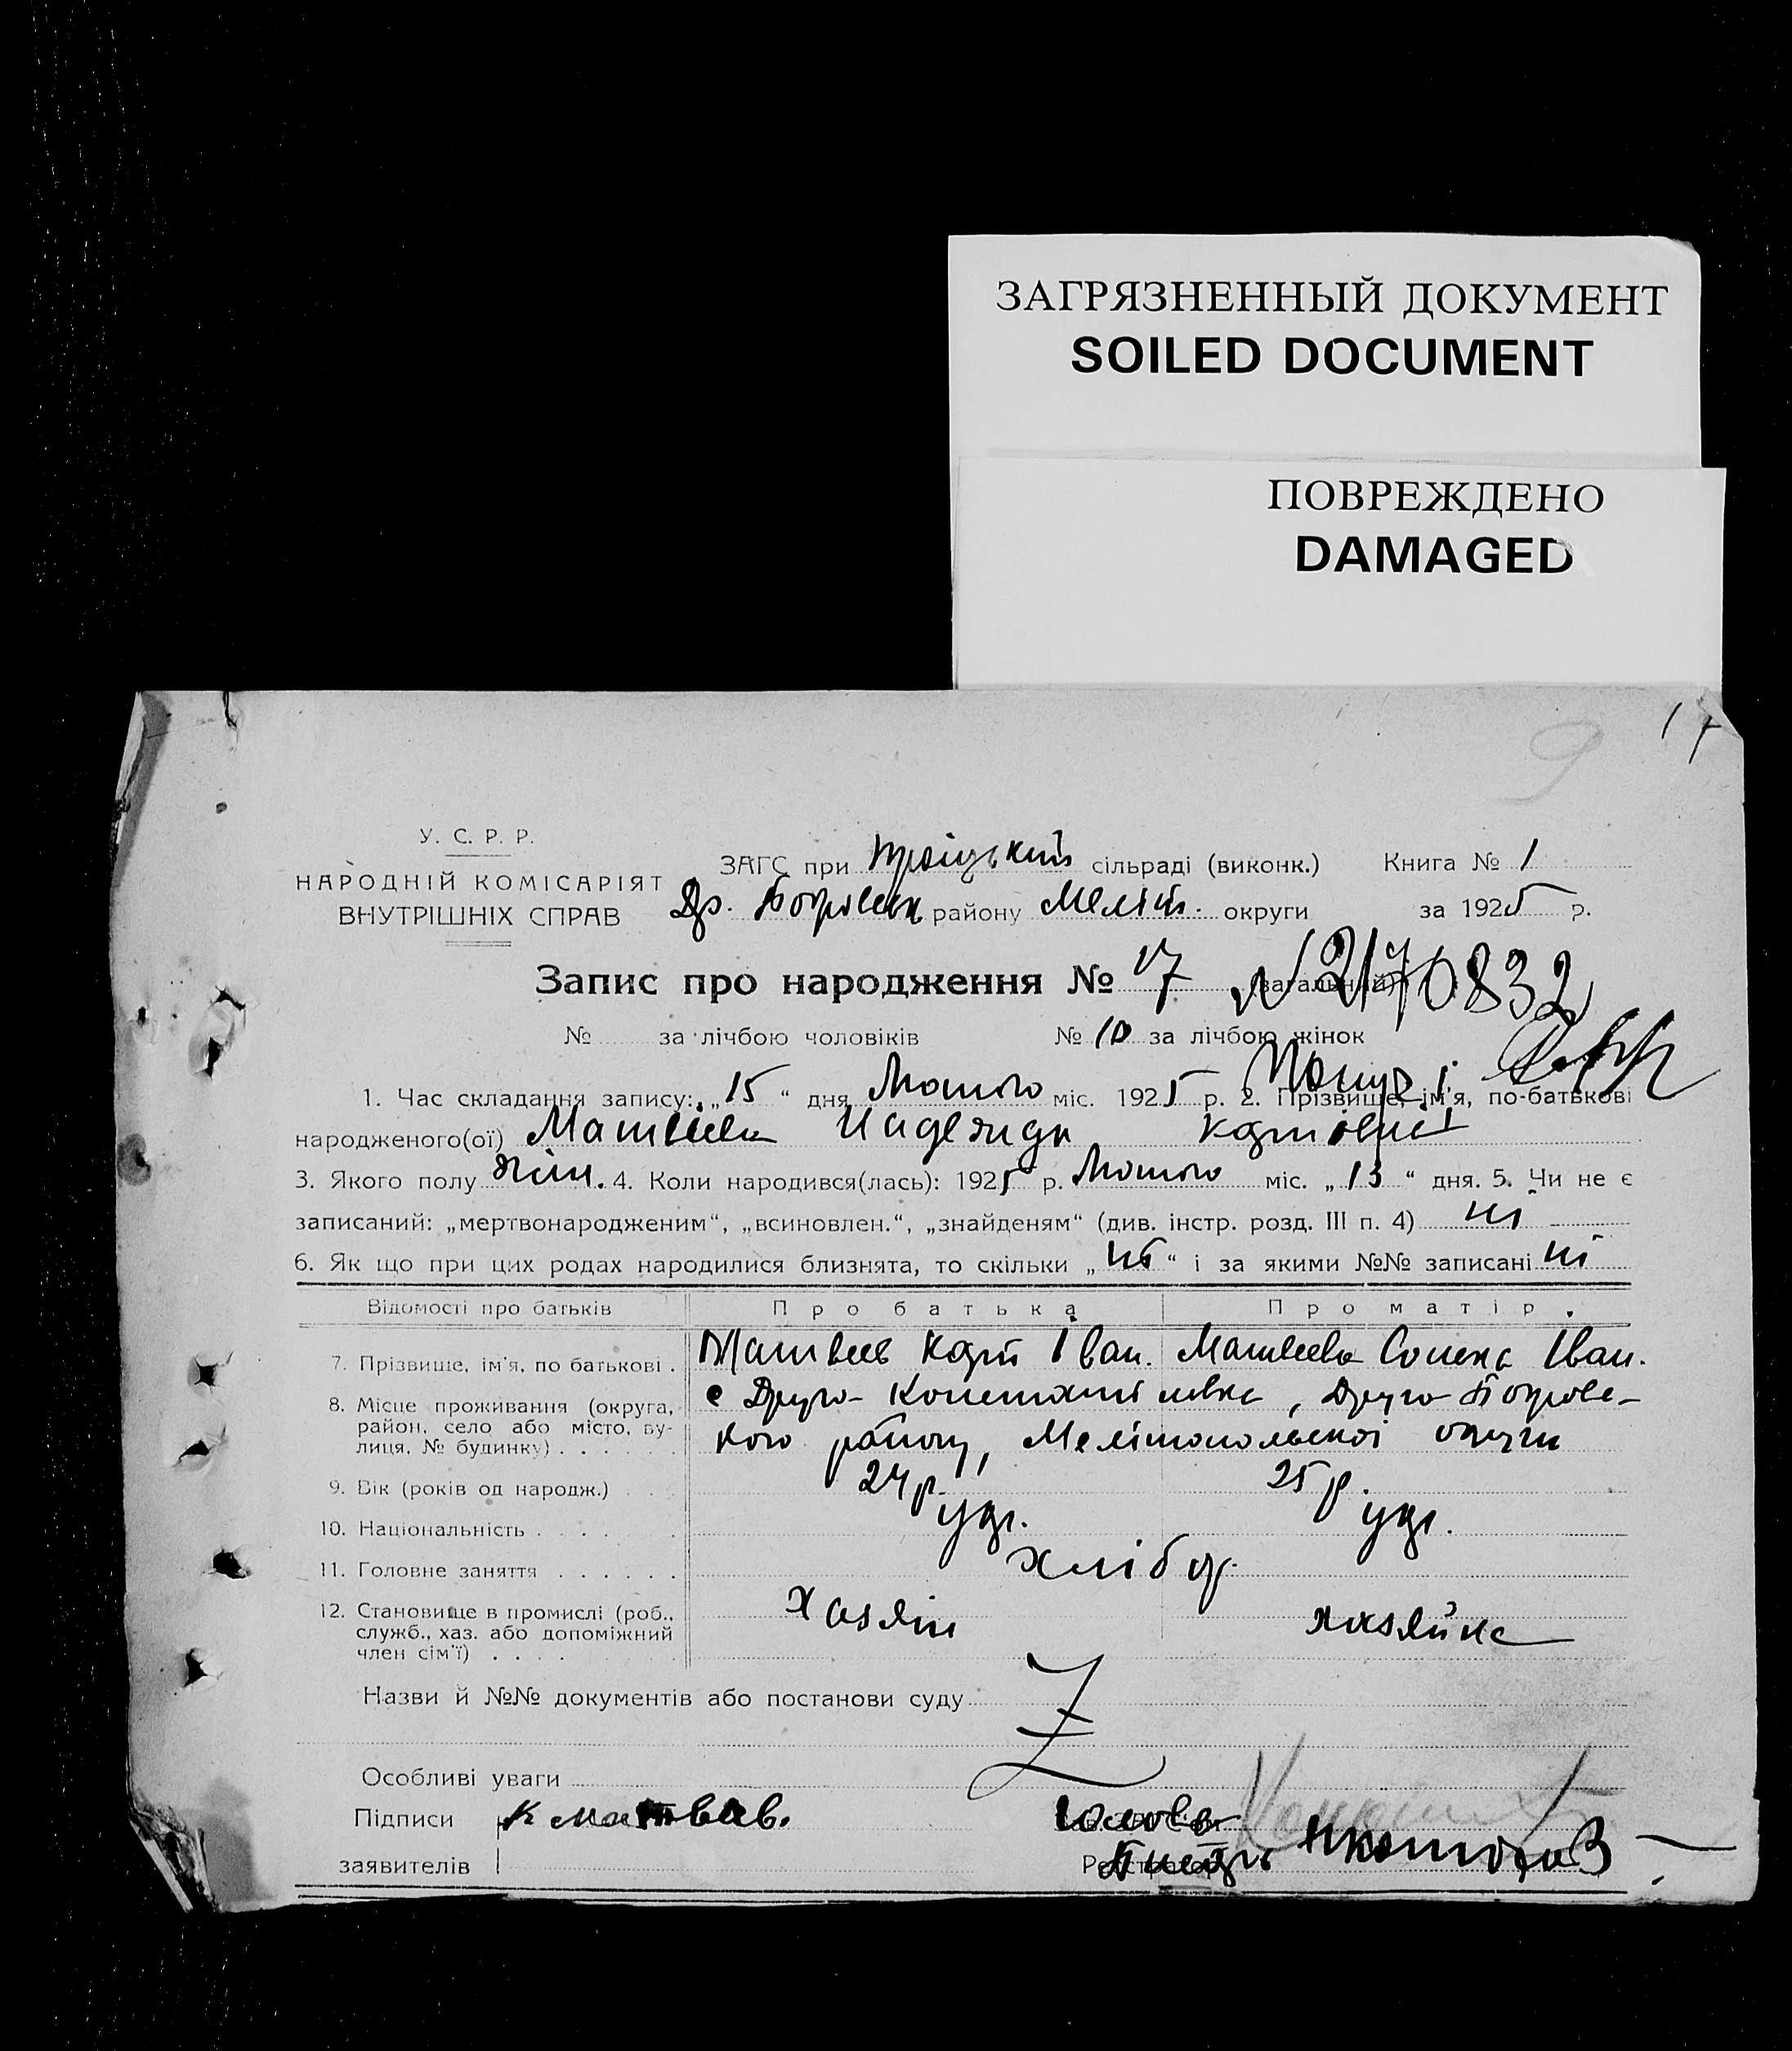 ЗАГРЯЗНЕННЫЙ ДОКУМЕНТ
SOILED DOCUMENT
ПОВРЕЖДЕНО
DAMAGED
9
17
У. С. Р. Р.
НАРОДНІЙ КОМІСАРІЯТ
ВНУТРІШНІХ СПРАВ
ЗАГС при Троіцький сільраді (виконк.) Книга № 1
Др. Покровськ району Меліт. округи за 1925 р.
Запис про народження № 17 (загальний) N 2170832
№ за лічбою чоловіків № 10 за лічбою жінок
1. Час складання запису: „15“ дня Лютого міс. 1925 р. 2. Прізвище, ім'я, по-батькові
народженого(ої) Матвеева Надежда
3. Якого полу жін. 4. Коли народився(лась): 1925 р. Лютого міс. „13“ дня. 5. Чи не є
записаний: „мертвонародженим“, „всиновлен.“, „знайденям“ (див. інстр. розд. III п. 4) ні
6. Як що при цих родах народилися близнята, то скільки „ні“ і за якими №№ записані ні
Відомості про батьків Про батька Про матір.
7. Прізвище, ім'я, по батькові . Матвеев Карп Іван. Матвеева Іван.
8. Місце проживання (округа, район, село або місто, вулиця, № будинку) с Друго- Константінівка, Друго Покровс-
кого району, Мелітопольскоі округи
9. Вік (років од народж.) 24 р. 25 р.
10. Національність укр. укр.
11. Головне заняття хлібор.
12. Становище в промислі (роб., служб., хаз. або допоміжний член сім'ї) Хазяін хазяйка
Назви й №№ документів або постанови суду
Особливі уваги
Підписи К Матвеев. Голова
заявителів